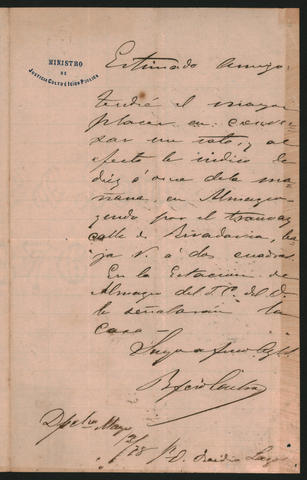 MINISTRO
DE
JUSTICIA CULTO É INSN PÚBLICA
Estimado amigo:
Tendré el mayor
placer en conver-
sar un rato, y al
efecto le indico la
diez ú once de la ma-
ñana en Almagro
yendo por el tramway
calle de Rivadavia, ba-
ja V. á dos cuadras
En la Estacion de
Almagro del F. C. del O.
le señalarán la
casa—
Suyo afmo
Mayo
/78
D. Lagos